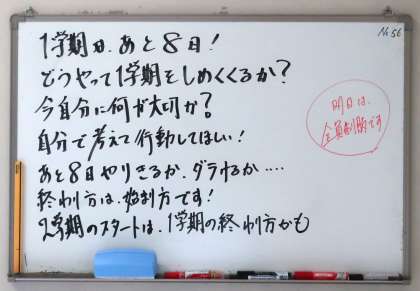 No.56
1学期が、あと8日!
どうやって1学期をしめくくるか?
今自分に何が大切か?
自分で考えて行動してほしい!
あと8日やりきるか、ダラけるか....
終わり方は、始まり方です!
2学期のスタートは、1学期の終わり方かも
明日は、
全員制服です